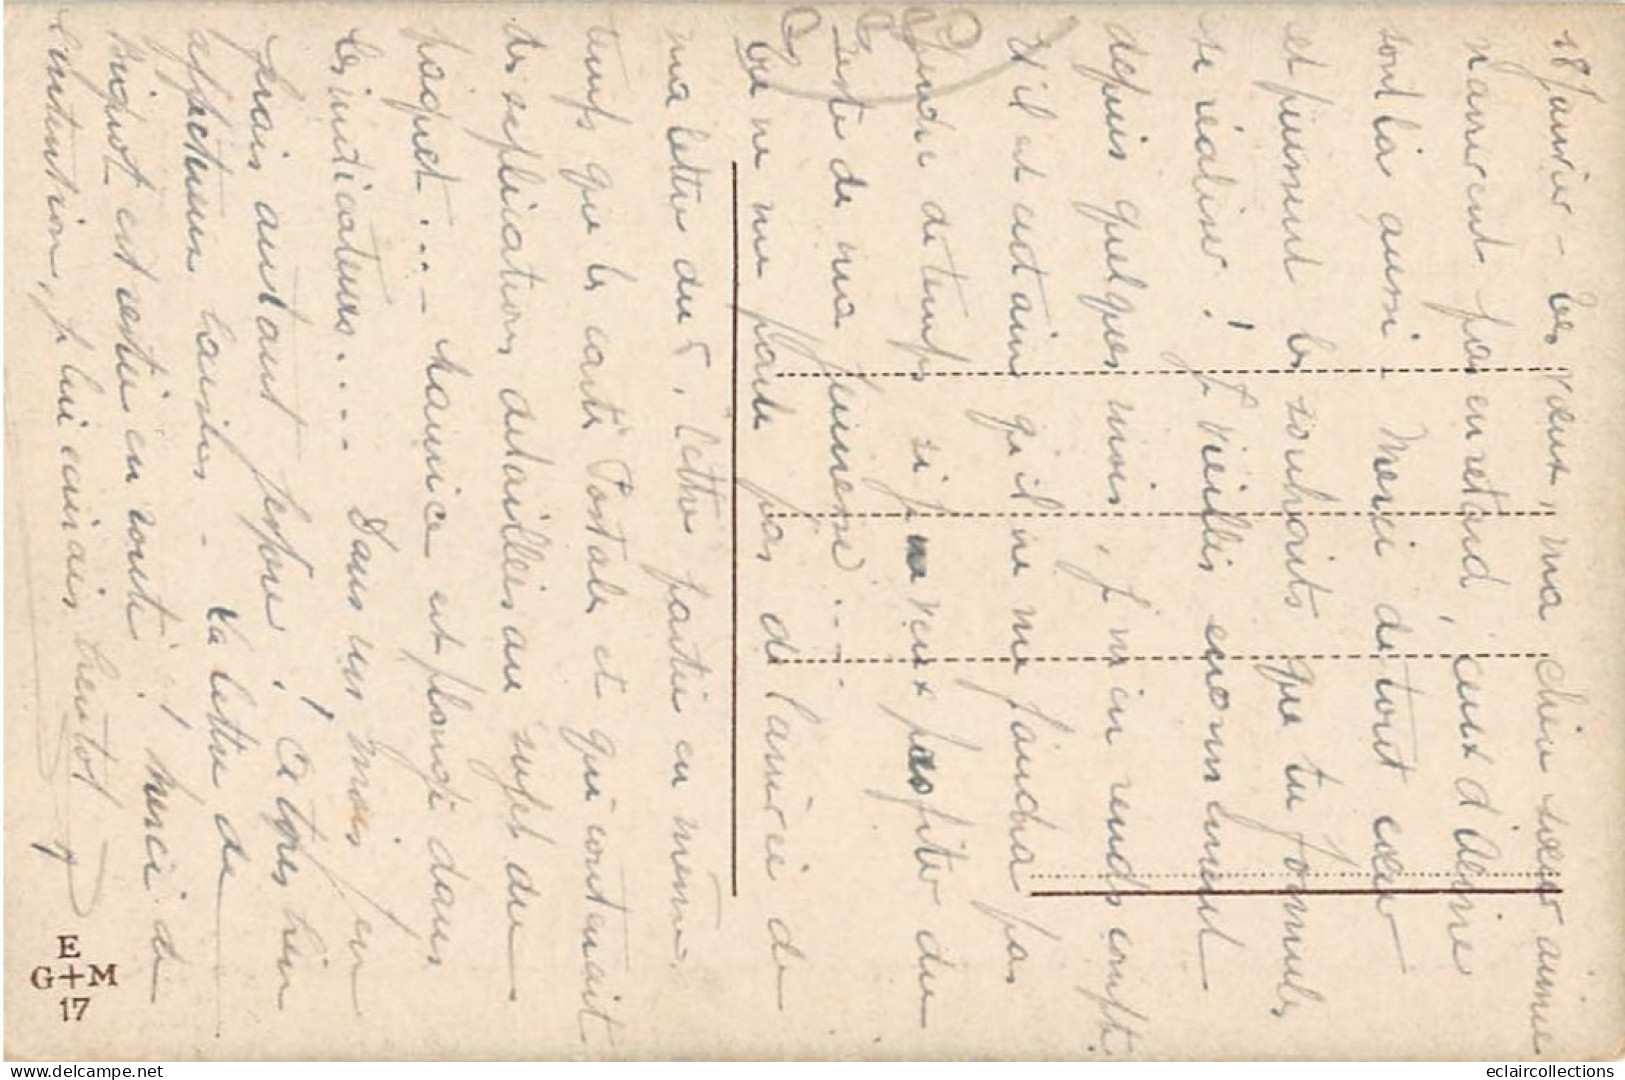 18 Janvier - Tes vœux, ma chère sœur aimée
n'auront pas en retard, ceux d'Denise
sont là aussi. Merci de tout cœur
et puissent les souhaits que tu formules
se réaliser! Je vieillis énormément
depuis quelques mois, je m'en rends compte.
et il est certain qu'il ne me faudra pas
perdre de temps si je ne veux pas profiter du
reste de ma jeunesse....
Tu ne me parles pas de l'amie de
ma lettre du 5, lettre partie en même
temps que la carte Postale et qui contenait
des explications détaillées au sujet du
paquet... - Maurice est plongé dans
les indicateurs.... Dans un mois j'en
ferais autant j'espère! à tous bien
affectueux baisers - La lettre de
Mignot est restée en route! Merci de
l'intention, je lui écrirais bientôt
E
G+M
17
eclaircollections